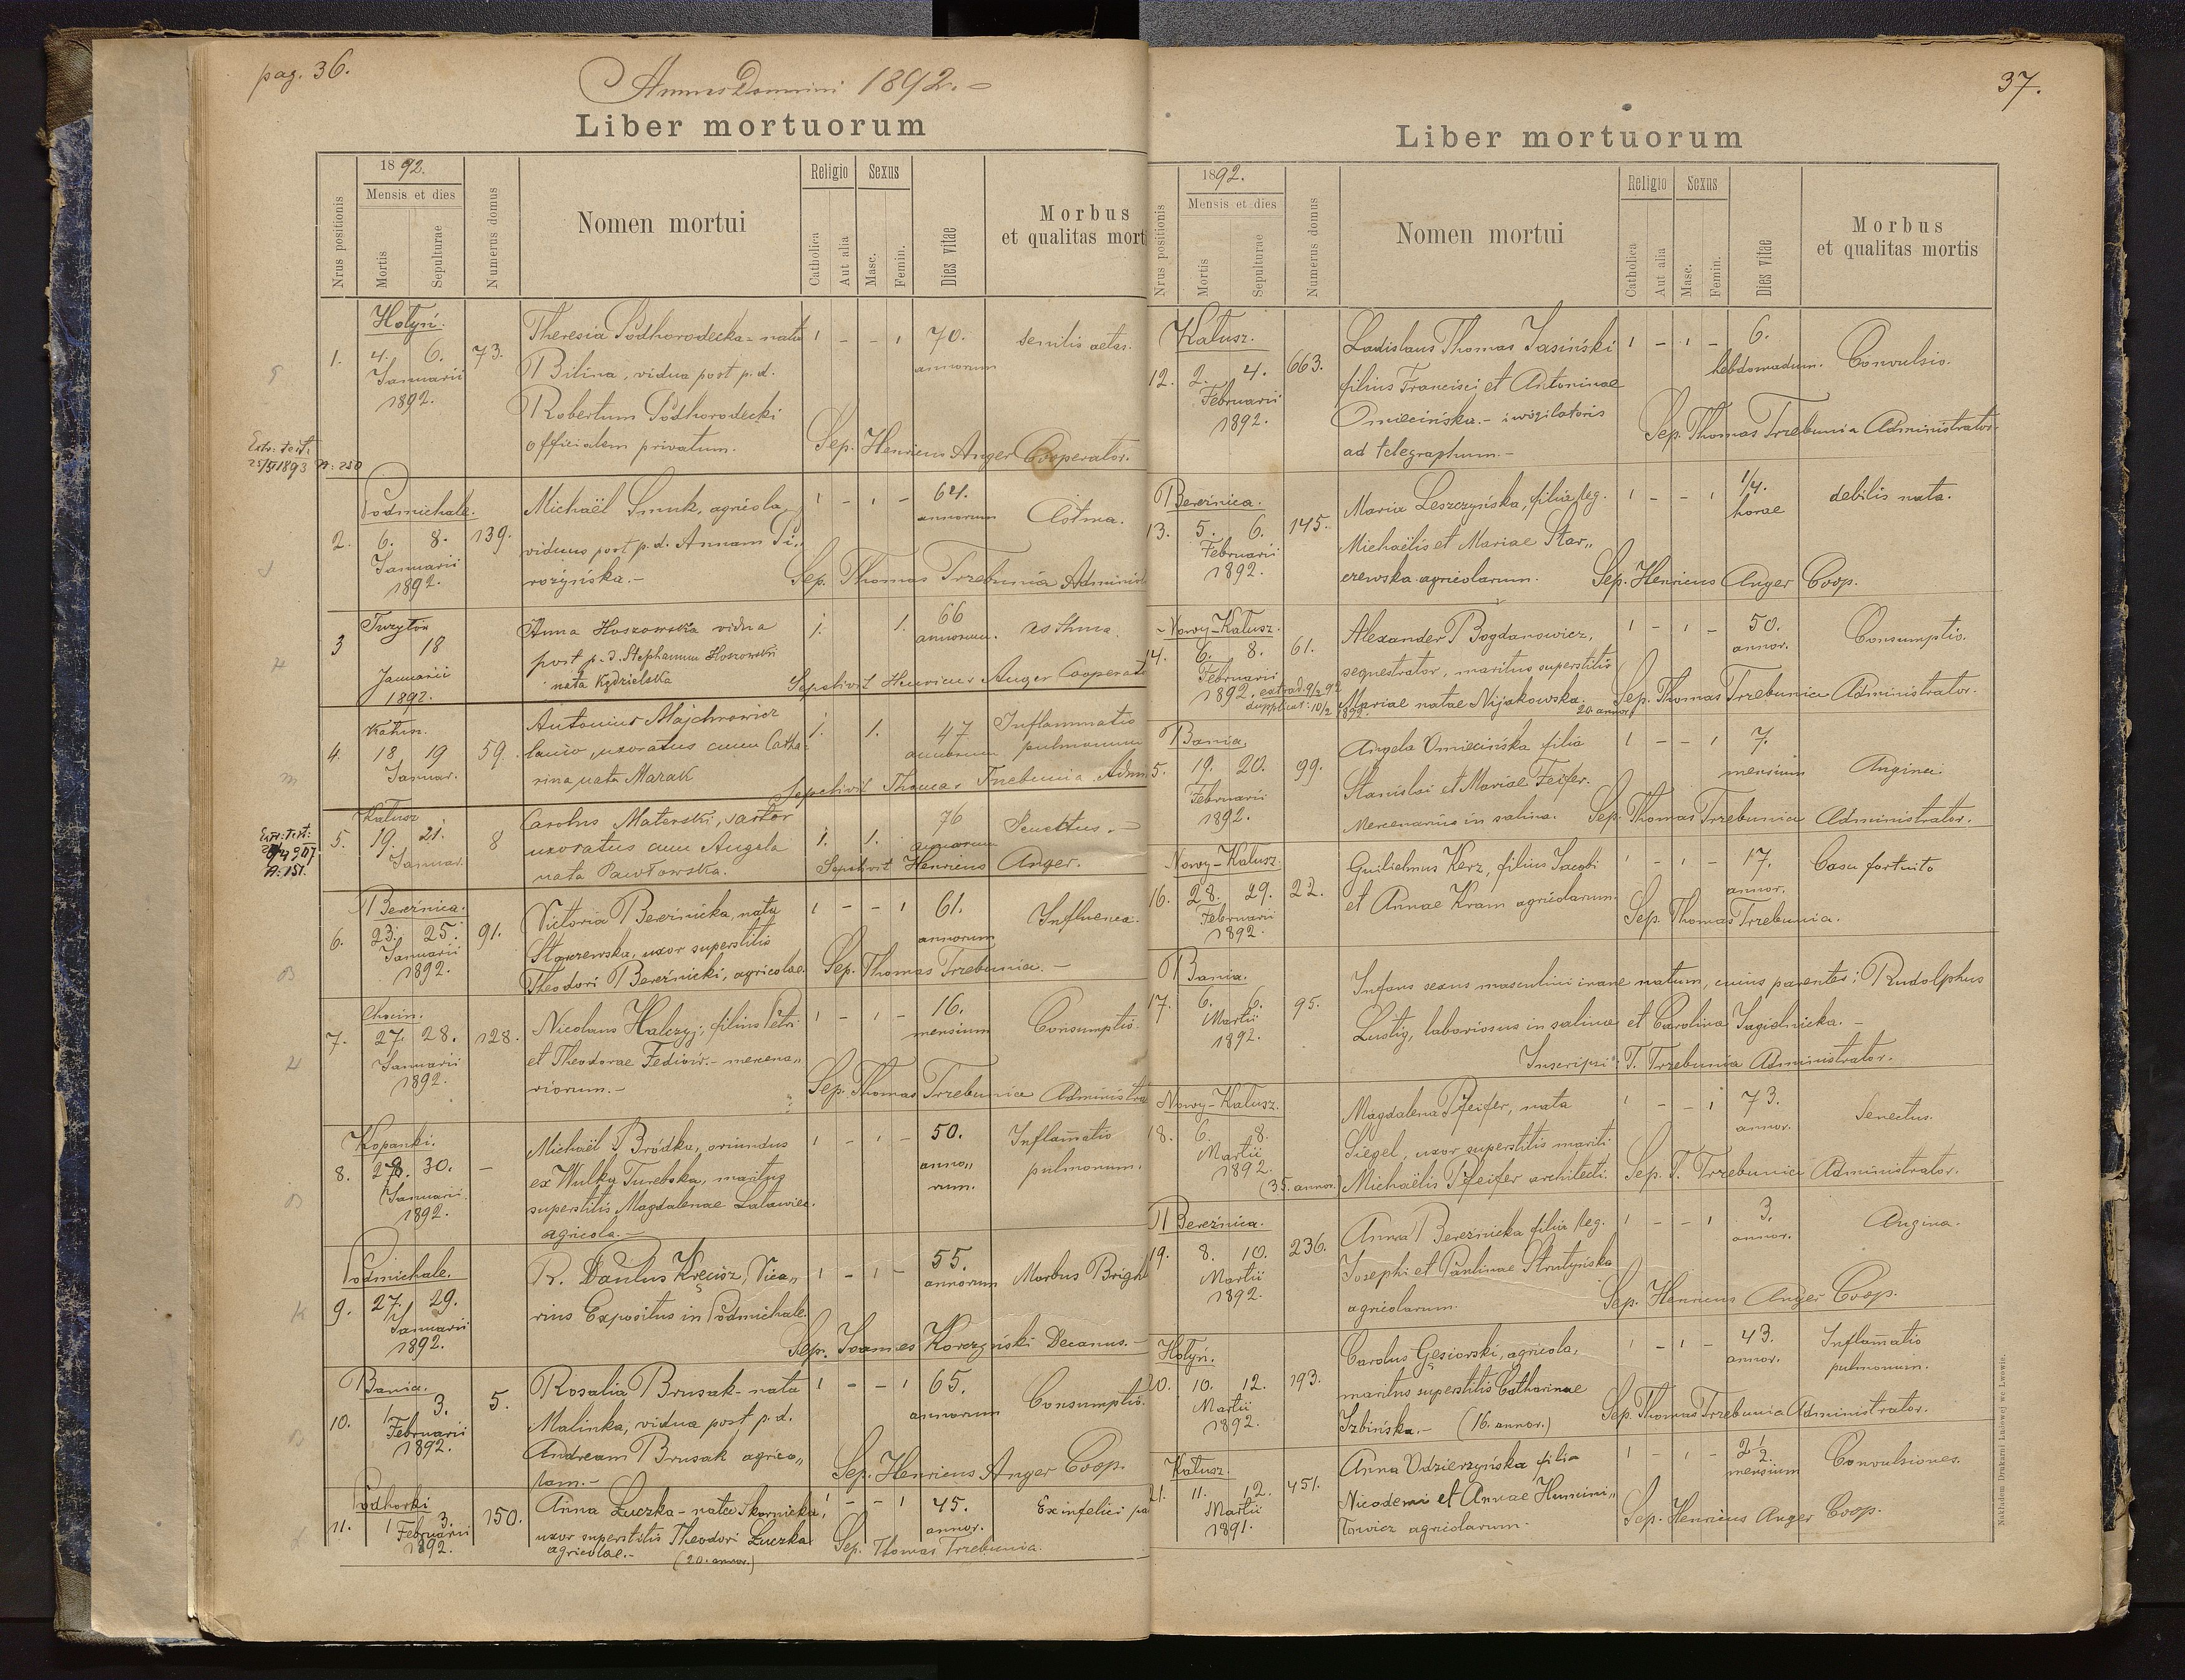 pag. 36.
Annus Domini 1892. –
Liber mortuorum
Nrus positionis
1892.
Mensis et dies
Mortis
Sepulturae
Numerus domus
Nomen mortui
Religio
Catholica
Aut alia
Sexus
Masc.
Femin.
Dies vitae
Morbus
et qualitas mort
Hołyń.
1. 4. 6. 73. Theresia Podhorodecka - nata 1 - - 1 70. senilis aetas.
Januarii Bilina, vidua post p. d. annorum
1892. Robertum Podhorodecki
officialem privatum. Sep. Henricus Anger Cooperator.
Extr: test:
N: 250
Podmichale.
2. 6. 8. 139. Michaël Smuk, agricola, 1 - 1 - 64. Astma.
Januarii viduus post p. d. Annam Si„ annorum
1892. rożyńska. – Sep. Thomas Trzebunia Administ
3 18 Anna Hoszowska vidua 1. 1. 66 asthma.
Januarii post p. d. Stephanum Hoszowski annorum.
1892. nata Kędzielska Sepelivit Henricus Anger Cooperato
4. 18 19 59. Antonius Majchrowicz 1. 1. 47 Inflammatio
Januar. lanio, uxoratus cum Catha- annorum pulmonum
rina nata Marak Sepelivit Thomas Trzebunia Adm.
Kałusz
5. 19. 21. 8 Carolus Materski, sartor 1. 1. 76 Senectus. –
Januar. uxoratus cum Angela annorum
nata Pawłowska. Sepelivit Henricus Anger.
N: 151.
Bereźnica.
6. 23. 25. 91. Victoria Bereźnicka, nata 1 - - 1 61. Influenca.
Januarii Starzewska, uxor superstitis annorum
1892. Theodori Bereźnicki, agricolae. Sep. Thomas Trzebunia. –
Chocin.
7. 27. 28. 128. Nicolaus Halczyj, filius Petri 1 - 1 - 16. Consumptio.
Januarii et Theodorae Fediow. – mercena„ mensium
1892. riorum. – Sep. Thomas Trzebunia Administra
Kopanki.
8. 30. – Michaël Bródka, oriundus 1 - 1 - 50. Inflam̄atio
Januarii ex Wulka Turebska, maritus anno„ pulmonum.
1892. superstitis Magdalenae Latawiec. rum.
agricola. –
Podmichale.
9. 27. 29. R. Paulus Kręcisz, Vica„ 1 - 1 - 55. Morbus Brigh
Januarii rius Expositus in Podmichale. annorum
1892. Sep. Joannes Korczyński Decanus. –
Bania.
10. 1 3. 5. Rosalia Brusak - nata 1 - - 1 65. Consumptio.
Februarii Malinka, vidua post p. d. annorum
1892. Andream Brusak agrico„
lam. – Sep. Henricus Anger Coop.
Podhorki
11. 1 3. 150. Anna Łuczka - nata Skornicka, 1 - - 1 45. Ex infelici pa
Februarii uxor superstitis Theodori Łuczka annor.
1892. agricolae. – (20. annor.) Sep. Thomas Trzebunia.
37.
Liber mortuorum
Nrus positionis
1892.
Mensis et dies
Mortis
Sepulturae
Numerus domus
Nomen mortui
Religio
Catholica
Aut alia
Sexus
Masc.
Femin.
Dies vitae
Morbus
et qualitas mortis
Kałusz.
12. 2. 4. 663. Ladislaus Thomas Jasiński 1 - 1 - 6. Convulsio.
Februarii filius Francisci et Antoninae hebdomadum.
1892. Omiecińska. – iwigilatoris
ad telegraphum. – Sep. Thomas Trzebunia Administrator.
Bereźnica.
13. 5. 6. 145. Maria Leszczyńska, filia leg. 1 - - 1 1/4. debilis nata.
Februarii Michaëlis et Mariae Star„ horae
1892. czewska agricolarum. Sep. Henricus Anger Coop.
Nowy-Kałusz.
14. 6. 8. 61. Alexander Bogdanowicz, 1 - 1 - 50. Consumptio.
Februarii sequestrator, maritus superstitis annor.
1892. extrad. 9/2 92 Mariae natae Nijakowska. Sep. Thomas Trzebunia Administrator.
duplicat: 10/2 1892. 20. annor.
Bania.
5. 19. 20. 99. Angela Omiecińska filia 1 - - 1 7. Angina.
Februarii Stanislai et Mariae Feifer. mensium
1892. Mercenarius in salina. Sep. Thomas Trzebunia Administrator.
Nowy-Kałusz.
16. 28. 29. 22. Guilielmus Kerz, filius Jacobi 1 - 1 - 17. Casu fortuito
Februarii et Annae Kram agricolarum. annor.
1892. Sep. Thomas Trzebunia.
Bania.
17. 6. 6. 95. Infans sexus masculini inane natum, cuius parentes: Rudolphus
Martii Lustig, laboriosus in salina et Carolina Jagielnicka. –
1892. Inscripsi: T. Trzebunia Administrator.
Nowy-Kałusz.
18. 6. 8. Magdalena Pfeifer, nata 1 - - 1 73. Senectus.
Martii Siegel, uxor superstitis mariti annor.
1892. (35. annor.) Michaëlis Pfeifer architecti. Sep. T. Trzebunia Administrator.
Bereźnica.
19. 8. 10. 236. Anna Bereźnicka filia leg. 1 - - 1 3. Angina.
Martii Josephi et Paulinae Strutyńska annor.
1892. agricolarum. Sep. Henricus Anger Coop.
Hołyń.
20. 10. 12. 193. Carolus Gęsiorski, agricola, 1 - 1 - 43. Inflam̄atio
Martii maritus superstitis Catharinae annor. pulmonum.
1892. Izbińska. – (16. annor.) Sep. Thomas Trzebunia Administrator.
Kałusz.
21. 11. 12. 451. Anna Udzierzyńska filia 1 - 1 - 2 1/2 Convulsiones.
Martii Nicodemi et Annae Humini„ mensium
1891. łowicz agricolarum. Sep. Henricus Anger Coop.
Nakładem Drukarni Ludowej we Lwowie.